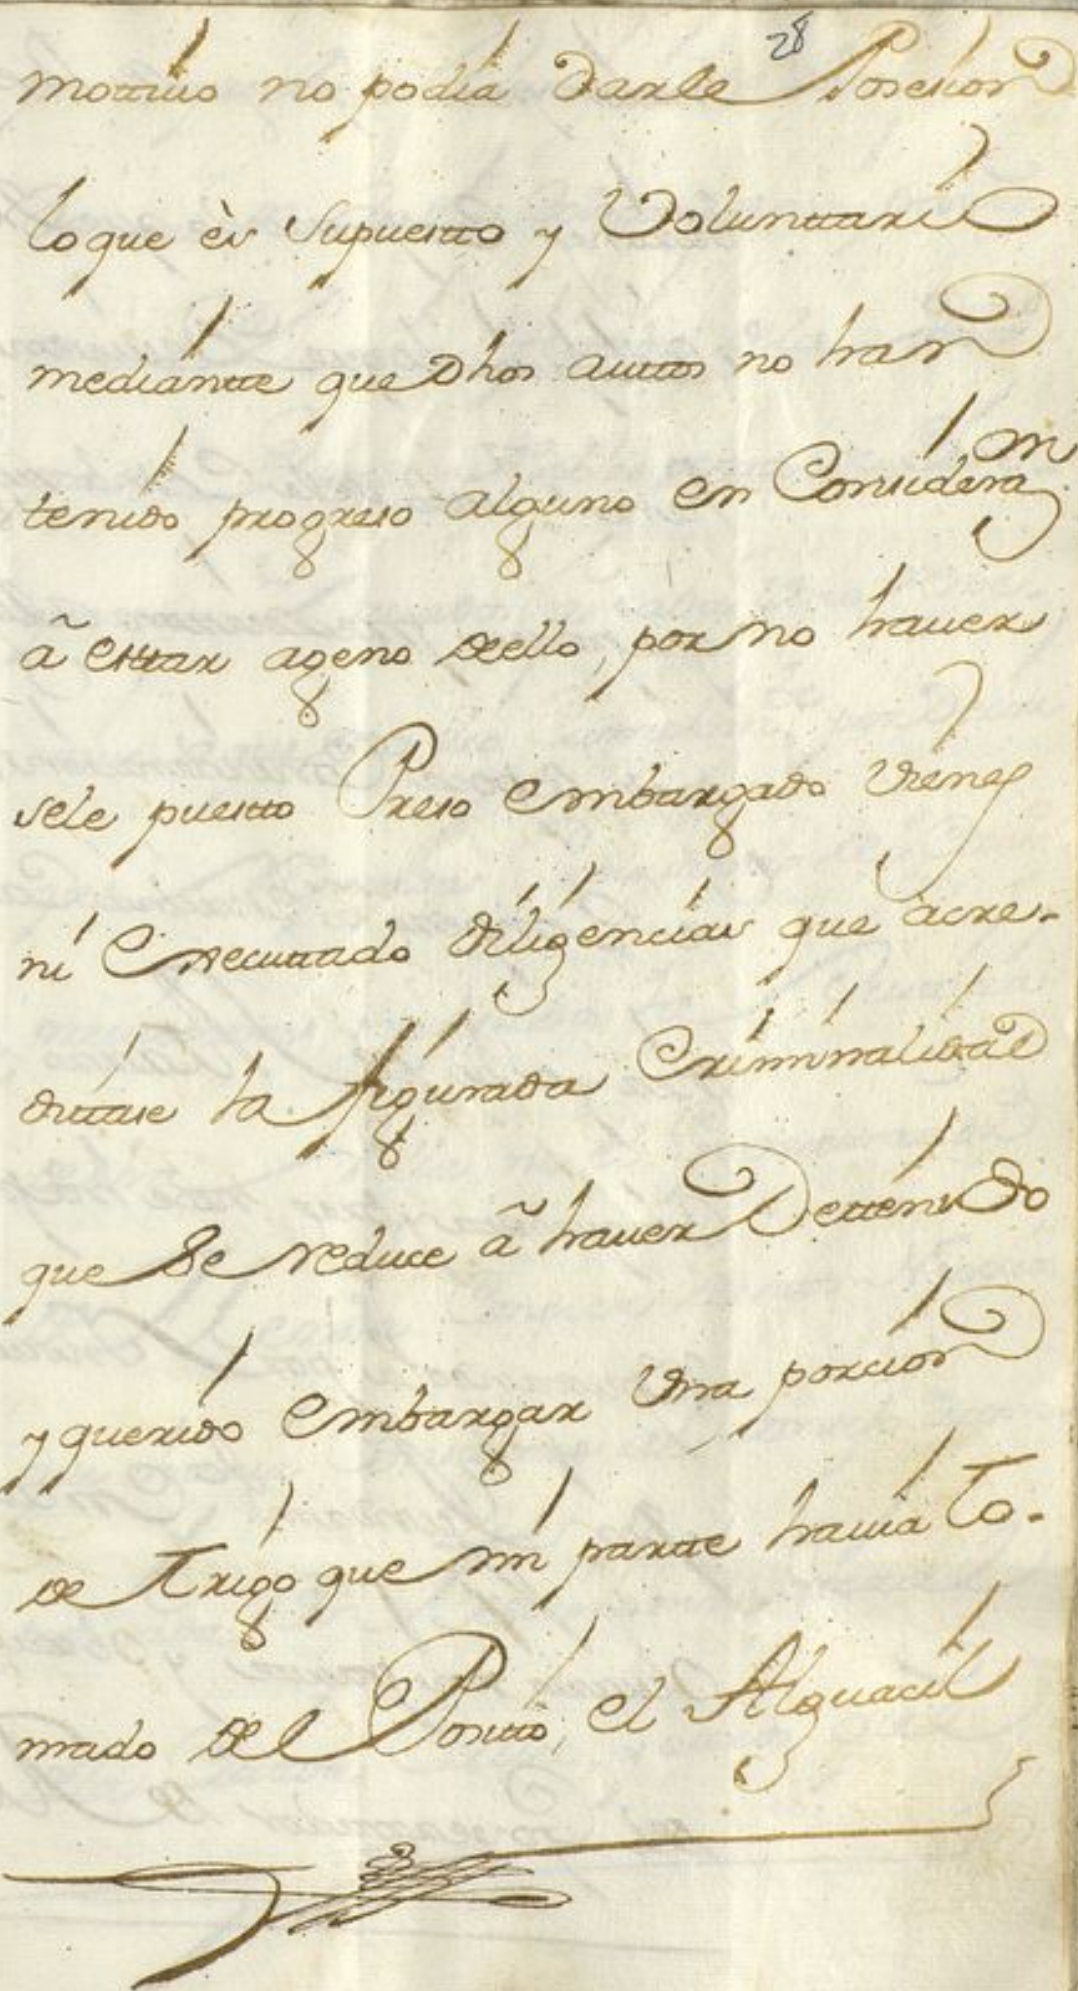 28
mottivo no podia darle Posesion
lo que ès Supuestto y Volunttario
mediantte que Dhos auttos no han
tenido progreso alguno en Considera^on
â esttar ageno de ello, por no haver
sele puestto Preso embargado vienes
ni Executtado diligencias que acre-
dittase la figurada Criminalidad
que Se reduce â haver Dettenido
y querido embargar Una porcion
de Trigo que mi partte havia To-
mado del Positto, el Alguacil